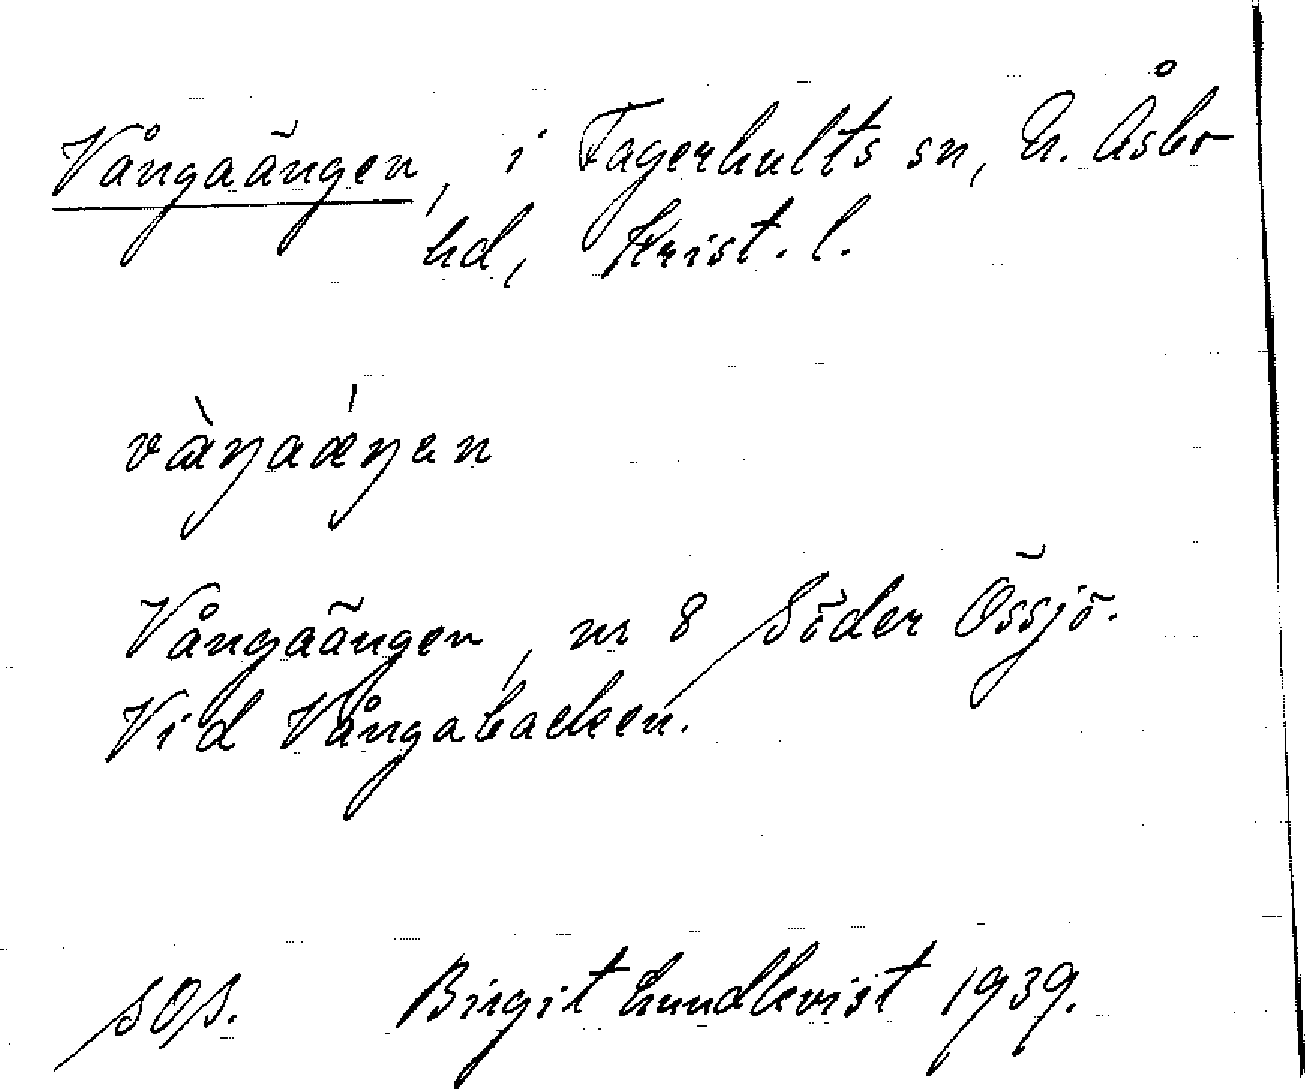 Vångaängen, i Fagerhults sn, N. Åsbo
hd, Krist. l.
vàŋaǽŋan
Vångaängen, nr 8 Söder Össjö.
Vid Vångabacken.
SOS. Birgit Lundkvist 1939.